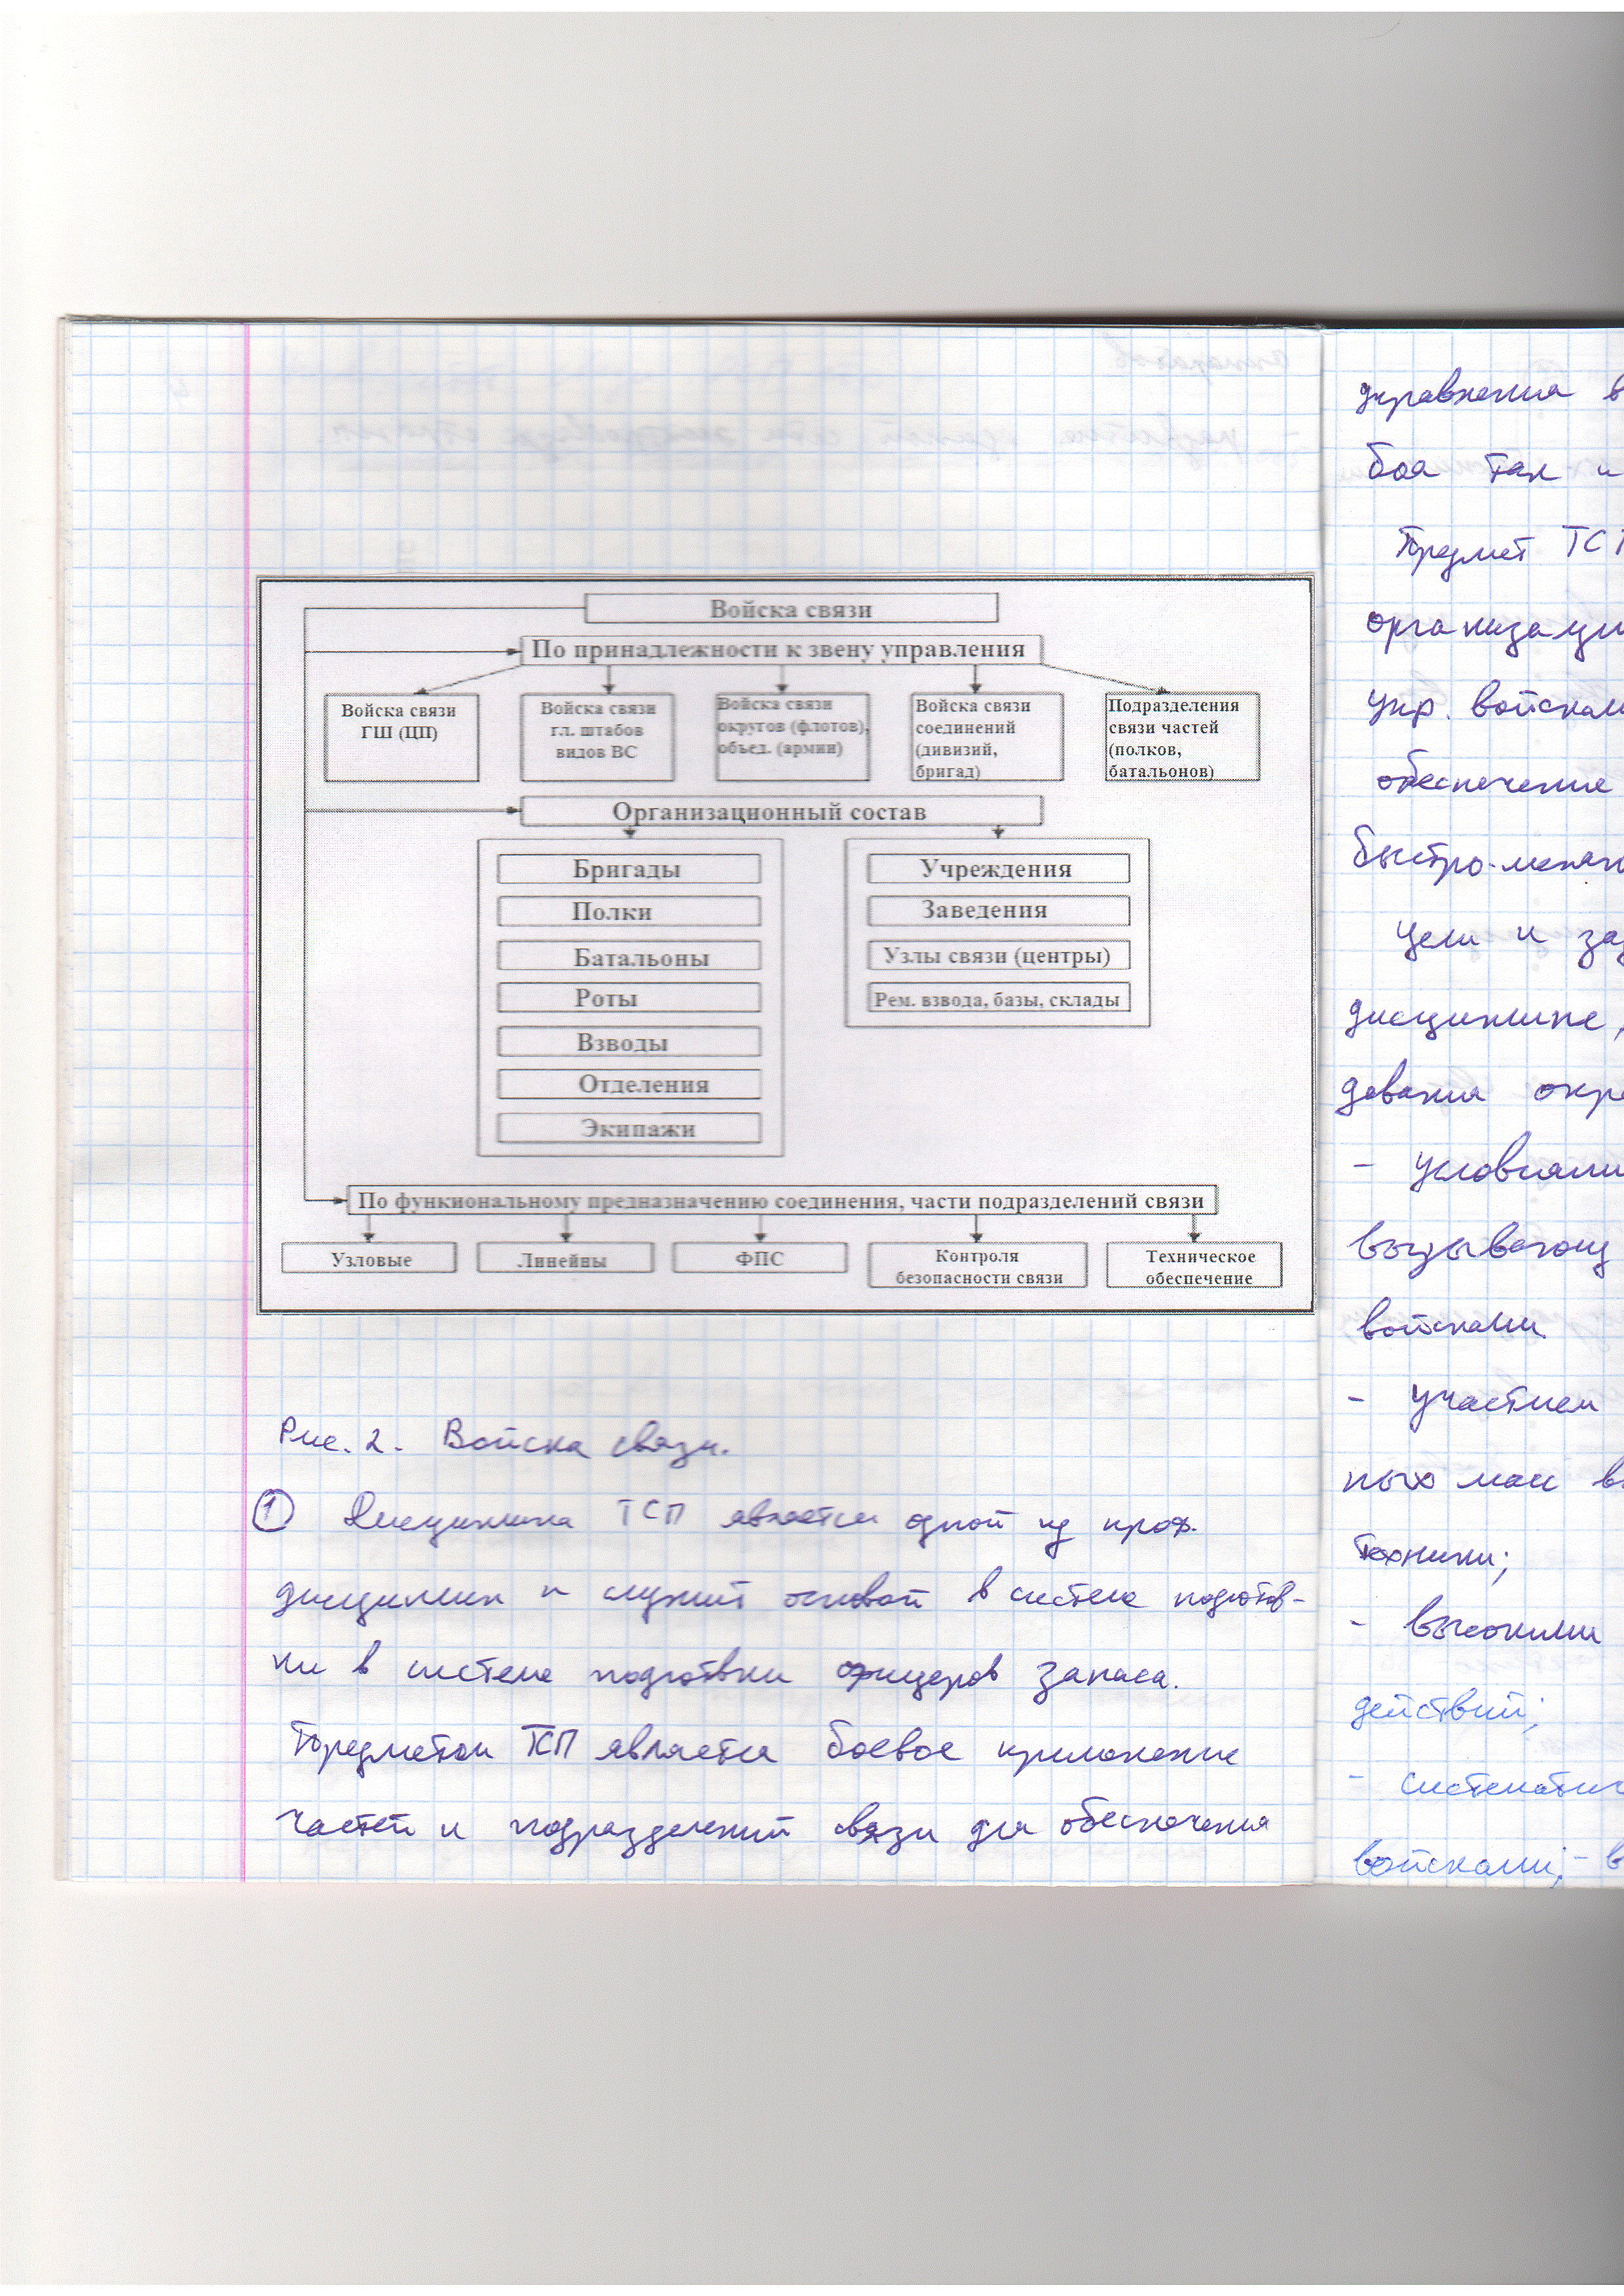 Войска связи
По принадлежности к звену управления
Войска связи
ГШ (ЦП)
Войска связи
гл. штабов
видов ВС
Войска связи
округов (флотов),
объед. (армии)
Войска связи
соединений
(дивизий,
бригад)
Подразделения
связи частей
(полков,
батальонов)
Организационный состав
Бригады
Полки
Батальоны
Роты
Взводы
Отделения
Экипажи
Учреждения
Заведения
Узлы связи (центры)
Рем. взвода, базы, склады
По функиональному предназначению соединения, части подразделений связи
Узловые
Линейны
ФПС
Контроля
безопасности связи
Техническое
обеспечение
Рис. 2. Войска связи.
1 Дисциплина ТСП является одной из проф.
дисциплин и служит основой в системе подготов-
ки в системе подготвки офицеров запаса.
Предметом ТСП является боевое
частей и подразделений связи для обеспечения
управления в
боя так и
Предмет ТСП
организации
упр. войсками
обеспечение
быстро-
Цели и за
дисциплине,
- условиями
войсками
- участием
ных мас в
техники;
- высокими
действий;
-
войсками; - в